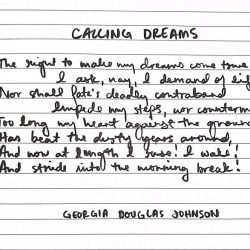 CALLING DREAMS
The right to make my dreams come true
I ask, nay, I demand of life
Nor shall fate's deadly contraband
Impede my steps, nor counterm
Too long my heart against the ground
Has beat the dusty years around,
And now at length I rise! I wake!
And stride into the morning break!
GEORGIA DOUGLAS JOHNSON